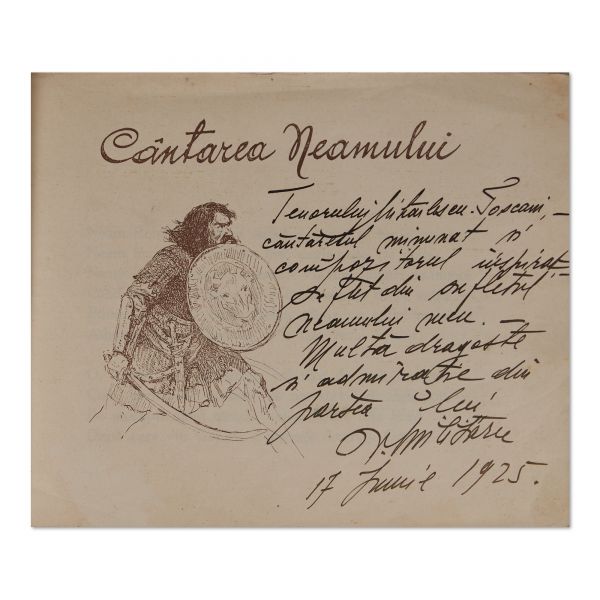 Cântarea Neamului
Tenorului Mihăilescu-Toscani,
cântărețul minunat și
compozitorul inspirat,
suflet din sufletul
neamului meu. –
Multă dragoste
și admirație din
partea lui
V. Militaru
17 Iunie 1925.